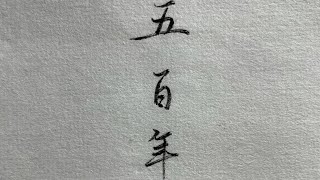 五百年